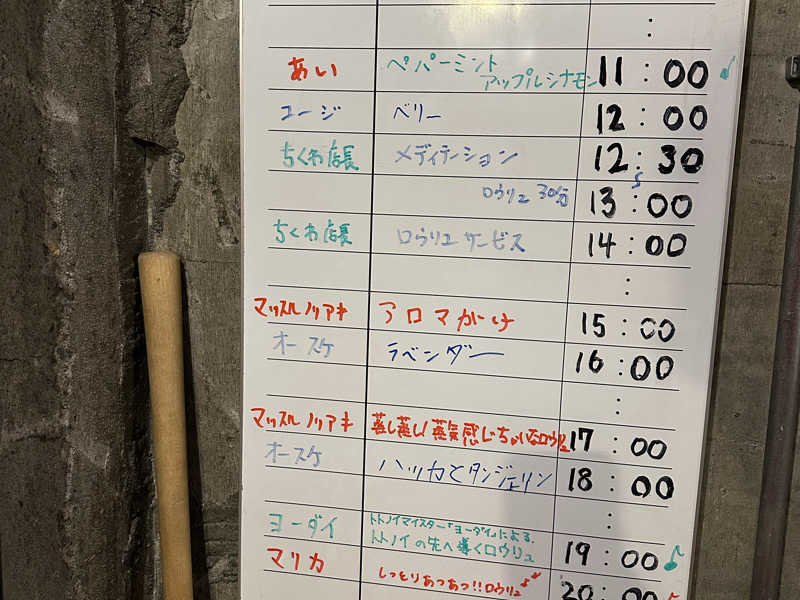 :
あい ペパーミント
アップルシナモン 11:00♪
ユージ ベリー 12:00
ちくわ店長 メディテーション 12:30
ロウリュ 30分 13:00
ちくわ店長 ロウリュサービス 14:00
:
マッスルノリアキ アロマがけ 15:00
オースケ ラベンダー 16:00
:
マッスルノリアキ 蒸し蒸し!蒸気感じちゃいなロウリュ 17:00
オースケ ハッカとタンジェリン 18:00
:
ヨーダイ トトノイマイスター「ヨーダイ」による、
トトノイの先へ導くロウリュ 19:00♪
マリカ しっとりあつあつ!!ロウリュ♪ 20:00♪